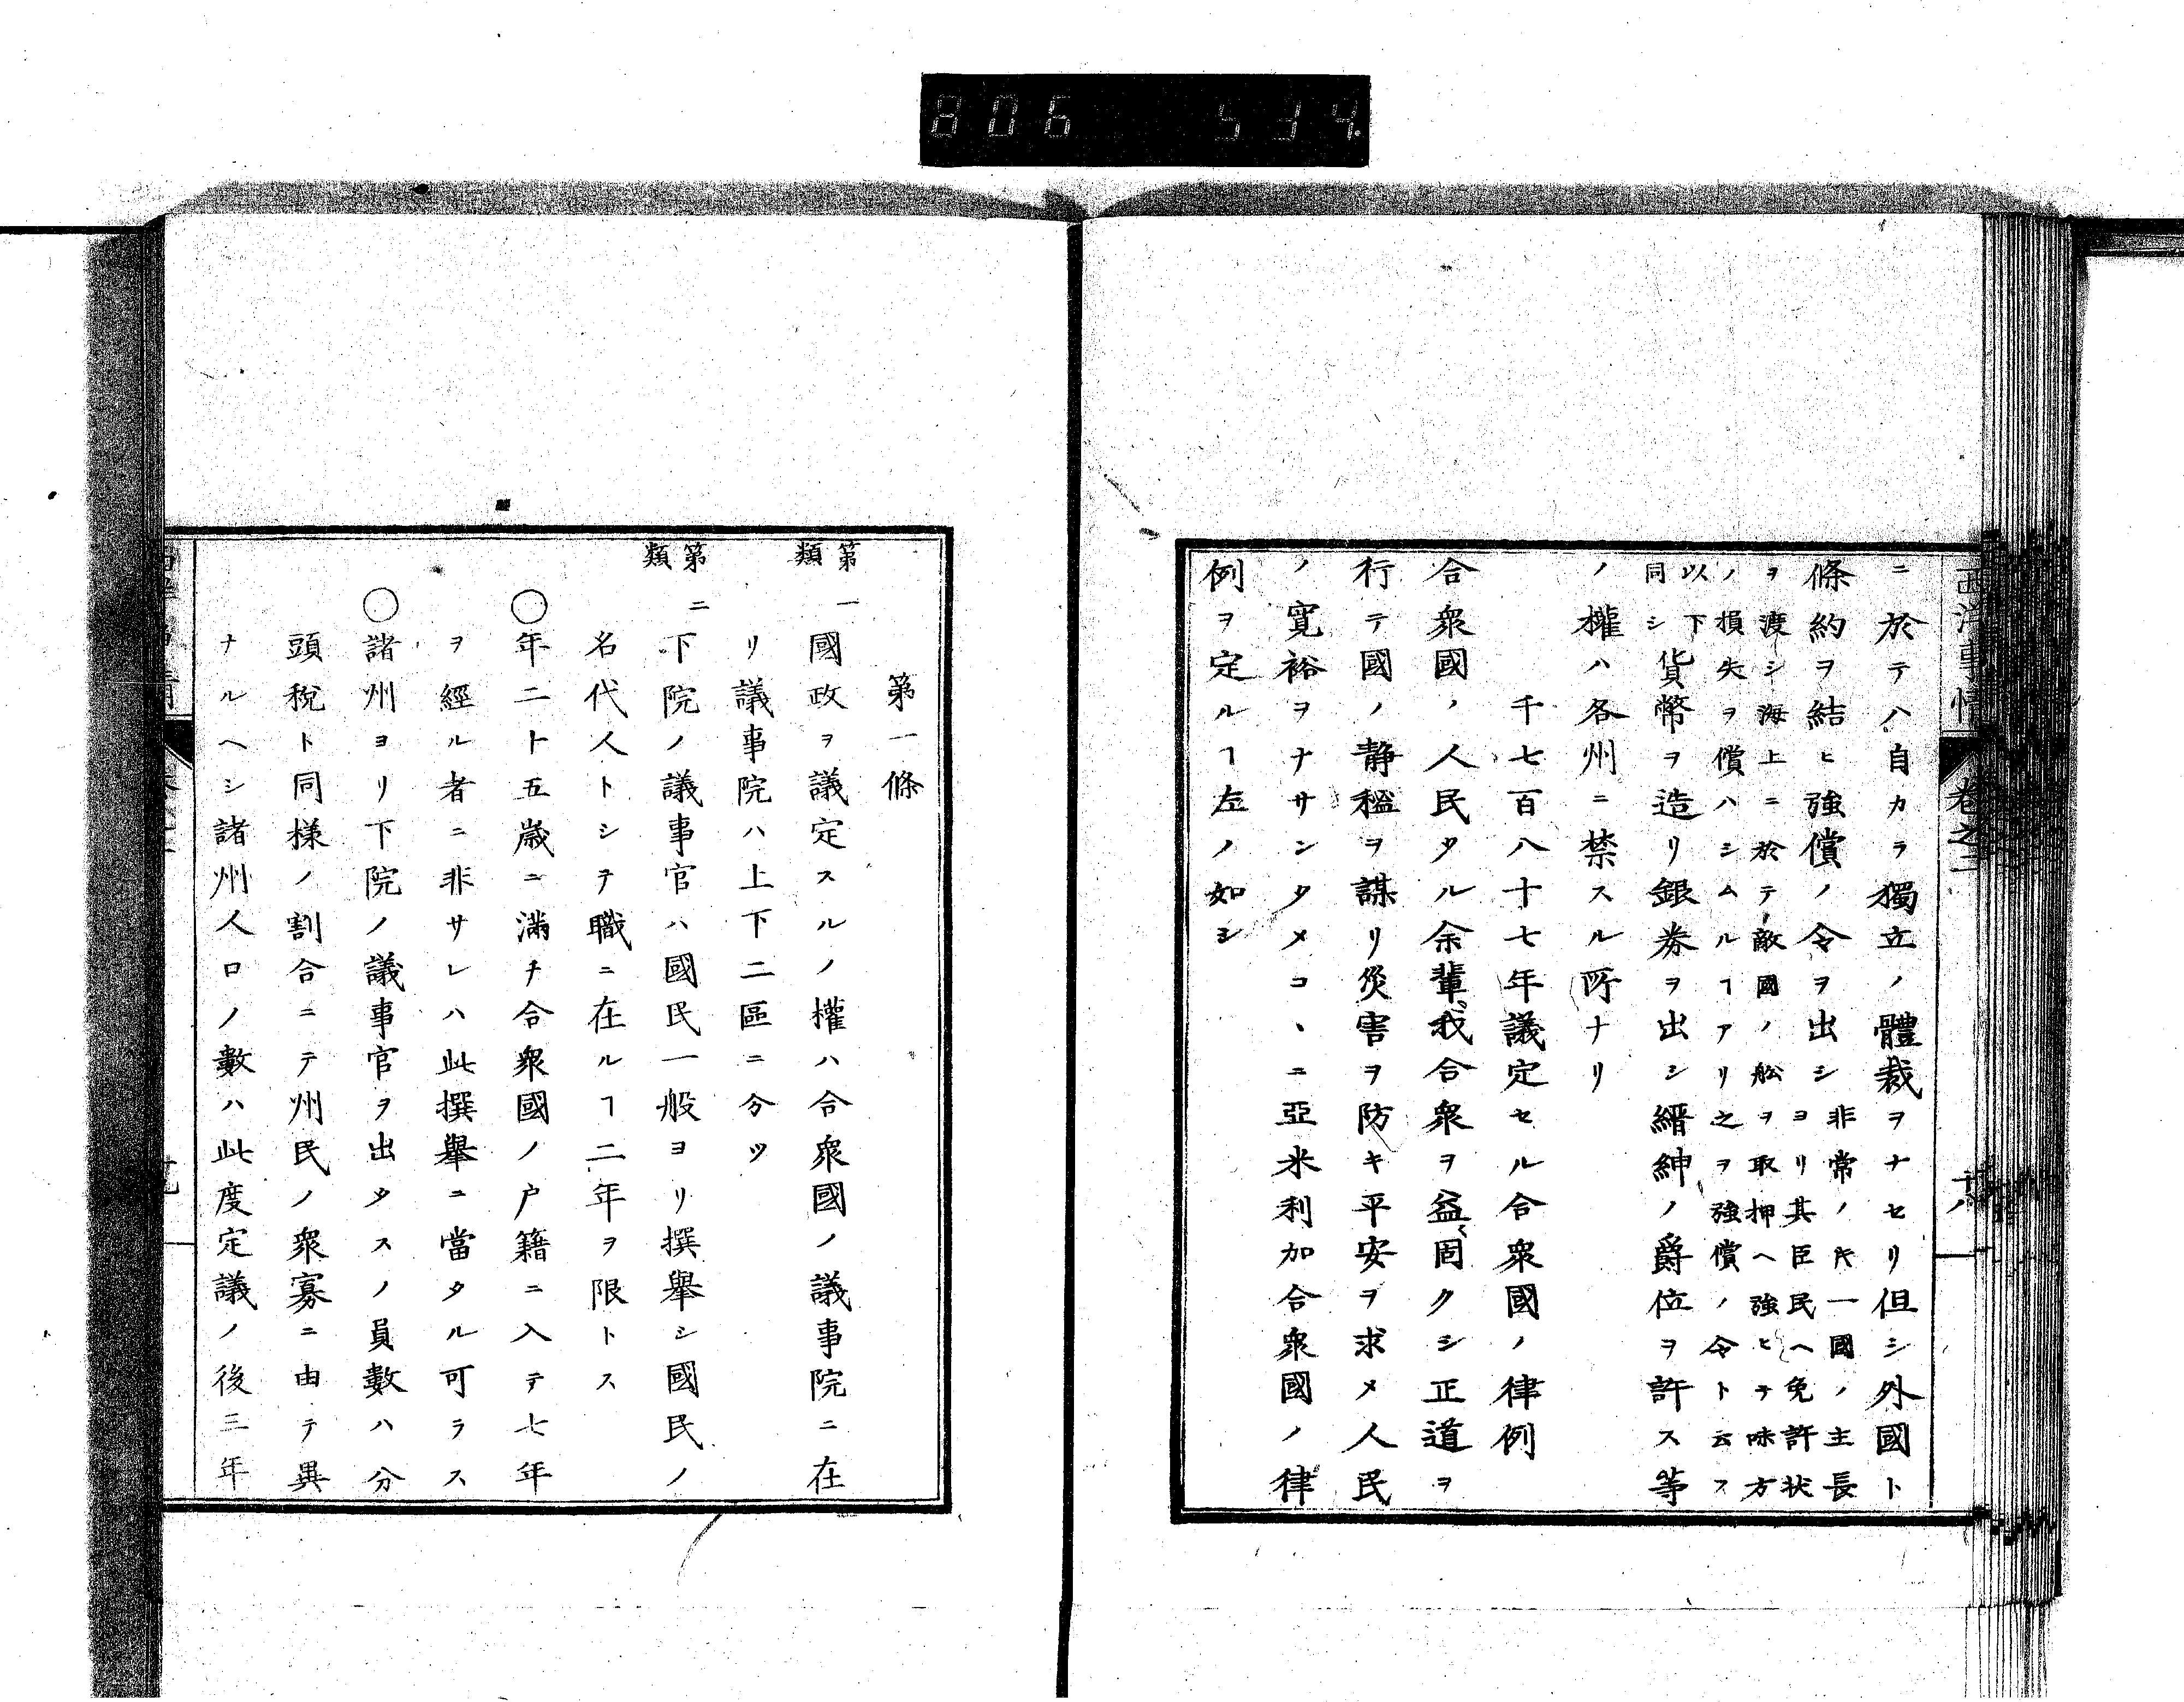 806 534
西洋事情 卷之二
ニ於テハ自カラ獨立ノ體裁ヲナセリ但シ外國ト
條約ヲ結ヒ強償ノ令ヲ出シ
非常ノ𪜈一國ノ主長
ヨリ其臣民ヘ免許状
ヲ渡シ海上ニ於テ敵國ノ舩ヲ取押ヘ強ヒテ味方
ノ損失ヲ償ハシムルヿアリ之ヲ強償ノ令ト云ス
以下
同シ
貨幣ヲ造リ銀券ヲ出シ縉紳ノ爵位ヲ許ス等
ノ權ハ各州ニ禁スル所ナリ
千七百八十七年議定セル合衆國ノ律例
合衆國ノ人民タル余輩我合衆ヲ益固クシ正道ヲ
行テ國ノ靜穏ヲ謀リ災害ヲ防キ平安ヲ求メ人民
ノ寛裕ヲナサンタメコヽニ亞米利加合衆國ノ律
例ヲ定ルヿ左ノ如シ
第一條
第一類
國政ヲ議定スルノ權ハ合衆國ノ議事院ニ在
リ議事院ハ上下二區ニ分ツ
第二類
下院ノ議事官ハ國民一般ヨリ撰擧シ國民ノ
名代人トシテ職ニ在ルヿ二年ヲ限トス
〇年二十五歳ニ滿チ合衆國ノ戸籍ニ入テ七年
ヲ經ル者ニ非サレハ此撰擧ニ當タル可ラス
〇諸州ヨリ下院ノ議事官ヲ出タスノ員數ハ分
頭税ト同様ノ割合ニテ州民ノ衆寡ニ由テ異
ナルヘシ諸州人口ノ數ハ此度定議ノ後三年